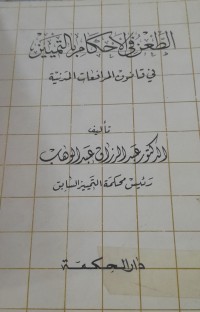 الطعن في الأحكام بالتمييز
في قانون المرافعات المدنية
تأليف
الدكتور عبد الرزاق عبد الوهاب
رئيس محكمة التمييز السابق
دار الحكمة